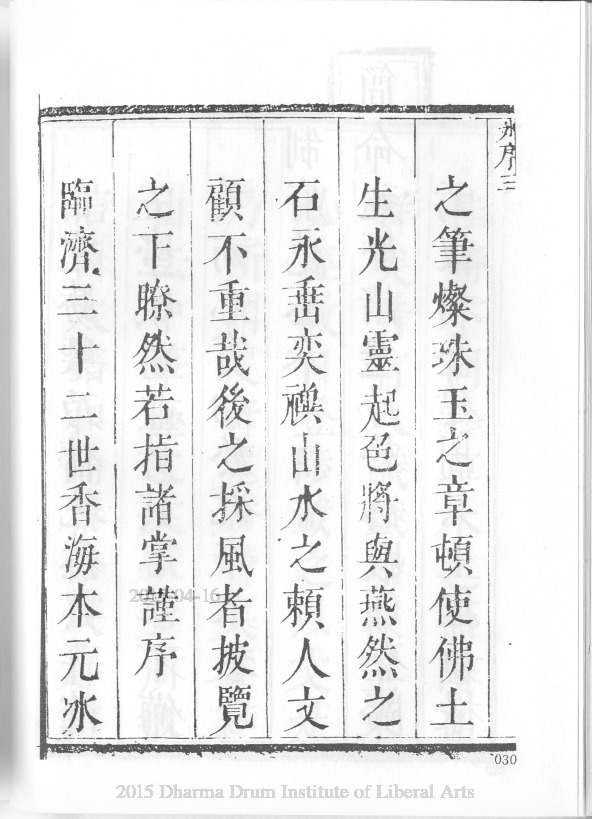 氷序三
之筆燦珠玉之章頓使佛土
生光山靈起色將與燕然之
石永垂奕禩山水之賴人文
顧不重哉後之採風者披覽
之下瞭然若指諸掌謹序
臨濟三十二世香海本元氷
030
2015 Dharma Drum Institute of Liberal Arts